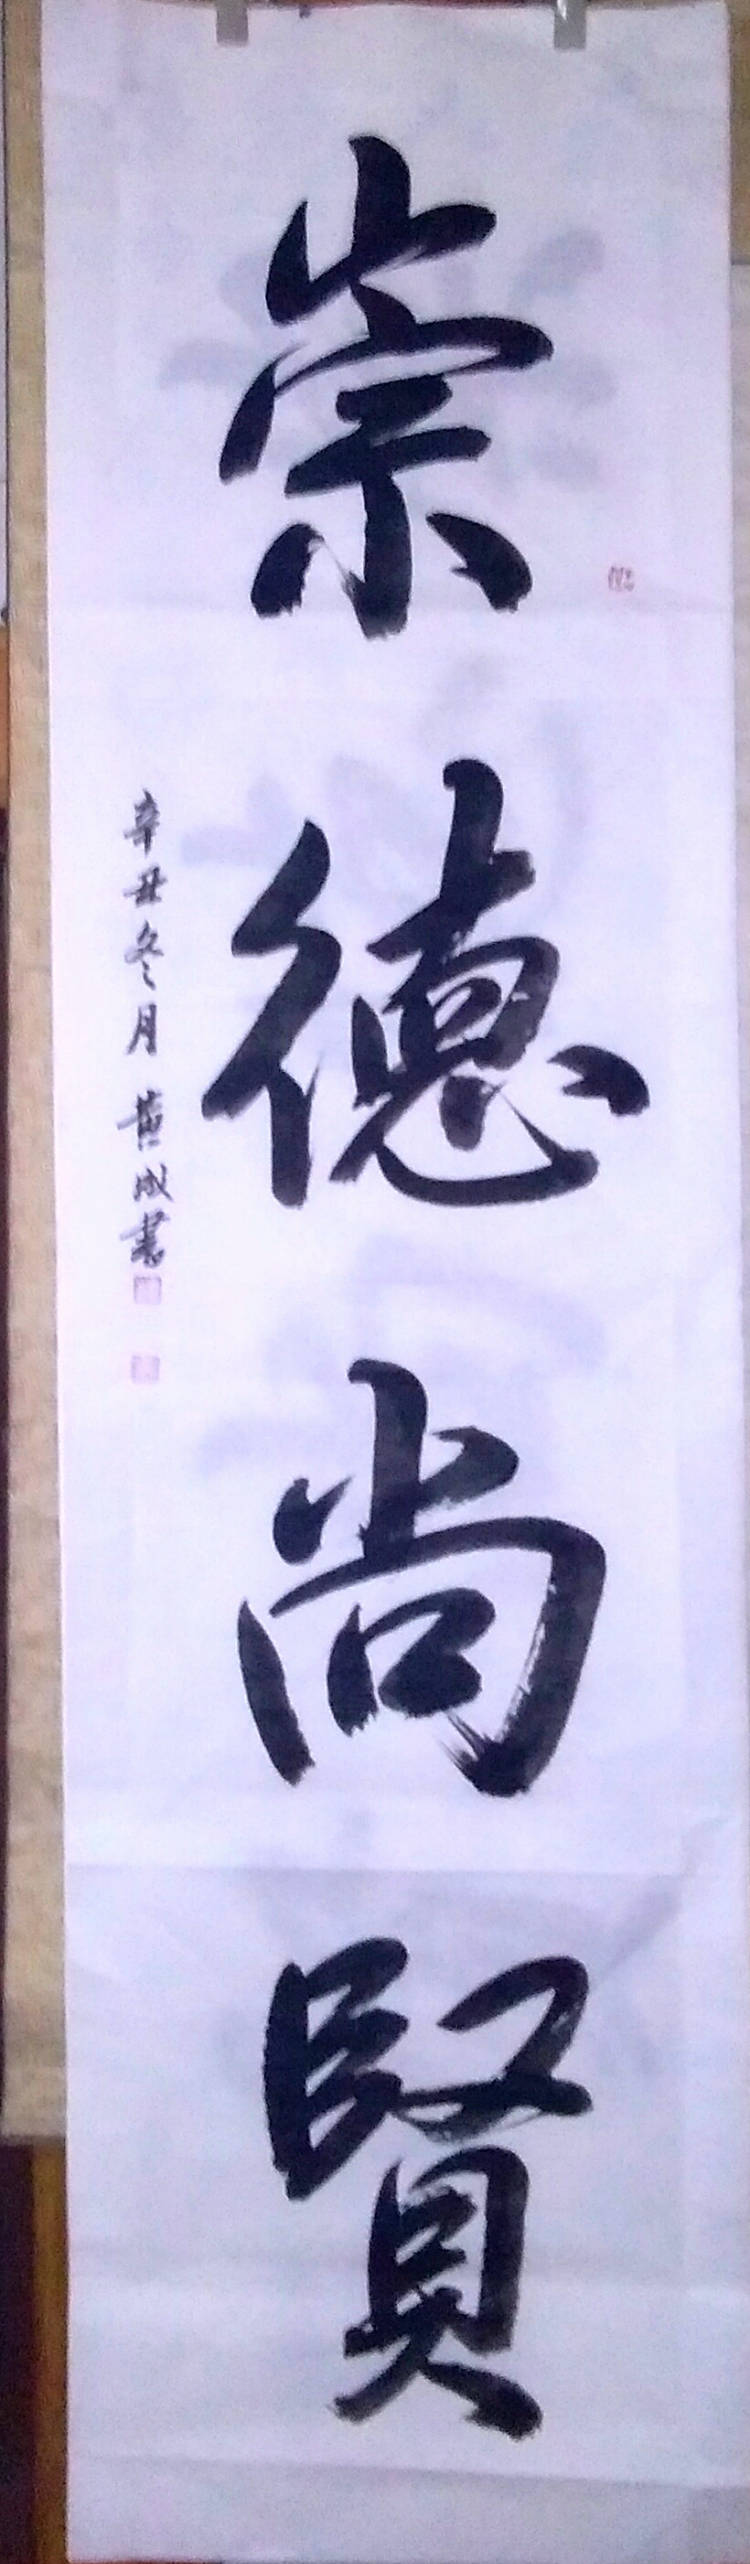 崇德尚賢
辛丑冬月黄成書